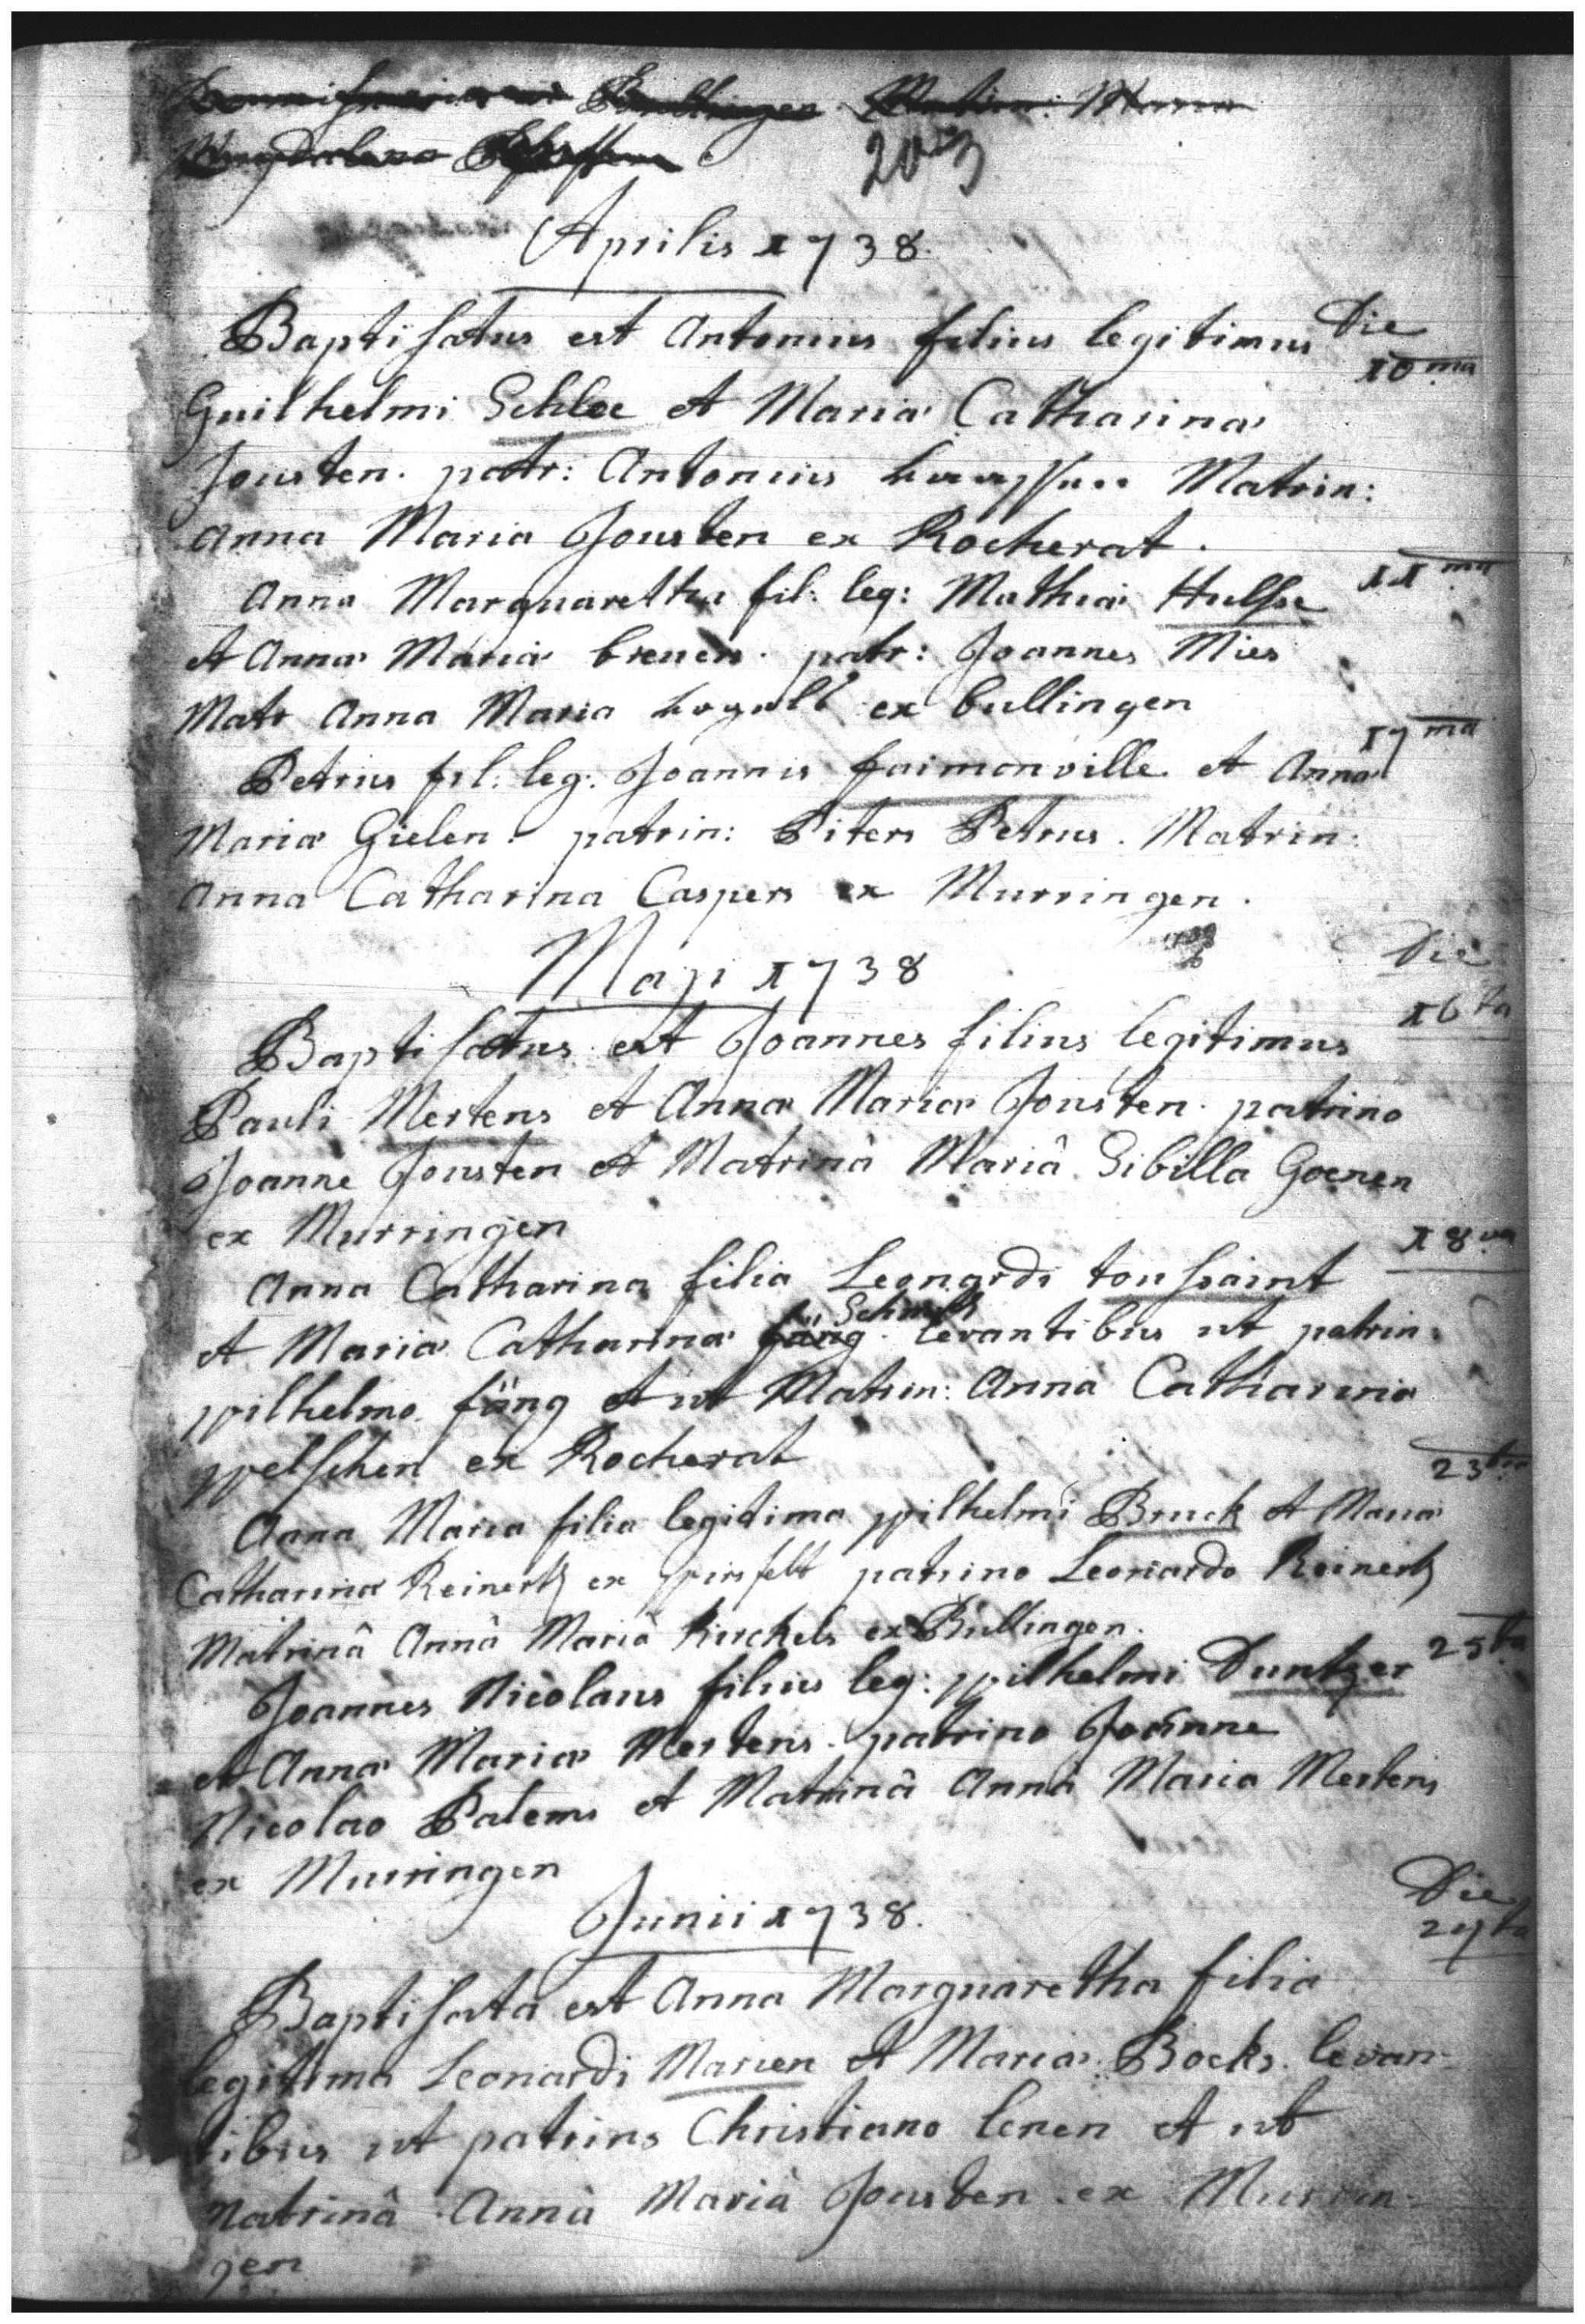 203
Aprilis 1738.
Baptisatus est Antonius filius legitimus Die
10ma
Guilhelmi Schlee et Maria Catharina
Jousten. patr: Antonius Matrin:
Anna Maria Jousten ex Rocherat.
Anna Marguaretha fil: leg: Mathia Hulsse 11ma
et Anna Maria brenen. patr: Joannes Mies
Matr Anna Maria ex bullingen
17ma
Petrus fil: leg: Joannis faimonville et Anna
Maria Gielen. patrin: Piters Petrus. Matrin:
Anna Catharina Caspers ex Murringen.
Maji 1738 Die
16ta
Baptisatus est Joannes filius legitimus
Pauli Mertens et Anna Maria Jousten. patrino
Joanne Jousten et Matrinâ Mariâ Sibilla Goenen
ex Murringen
18va
Anna Catharina filia Leonardi toussaint
et Maria Catharina füng Schmitt levantibus ut patrin:
wilhelmo füng et ut Matrin: Anna Catharina
welschen ex Rocherat 23tia
Anna Maria filia legitima wilhelmi Bruck et Maria
Catharina Reinertz ex wirsfelt patrino Leonardo Reinertz
Matrinâ Annâ Mariâ Kirckels ex Bullingen.
Joannes Nicolaus filius leg: wilhelmi Duntzer 25ta
et Anna Maria Mertens. patrino Joanne
Nicolao Palems et Matrinâ Annâ Maria Mertens
ex Murringen
Junii 1738. Die
29ta
Baptisata est Anna Marguaretha filia
legitima Leonardi Marien et Maria Bocks. levan-
tibus ut patrins Christiano lenen et ut
Matrinâ Annâ Mariâ Jousten ex Murrin-
gen